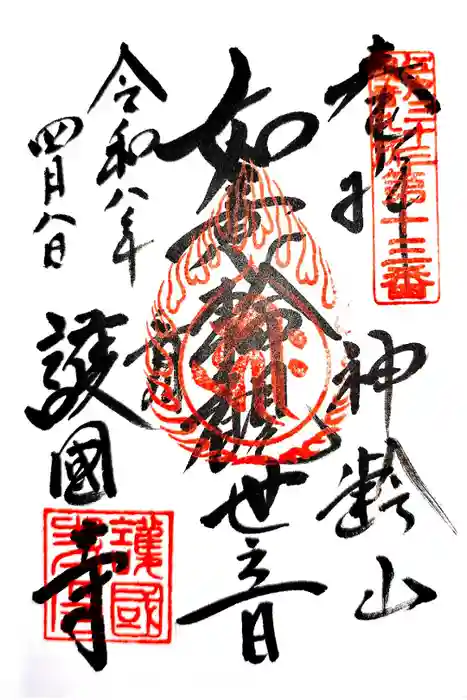 奉拝
第十三番
神齢山
如意輪観世音
令和八年
四月八日
護國寺
護國